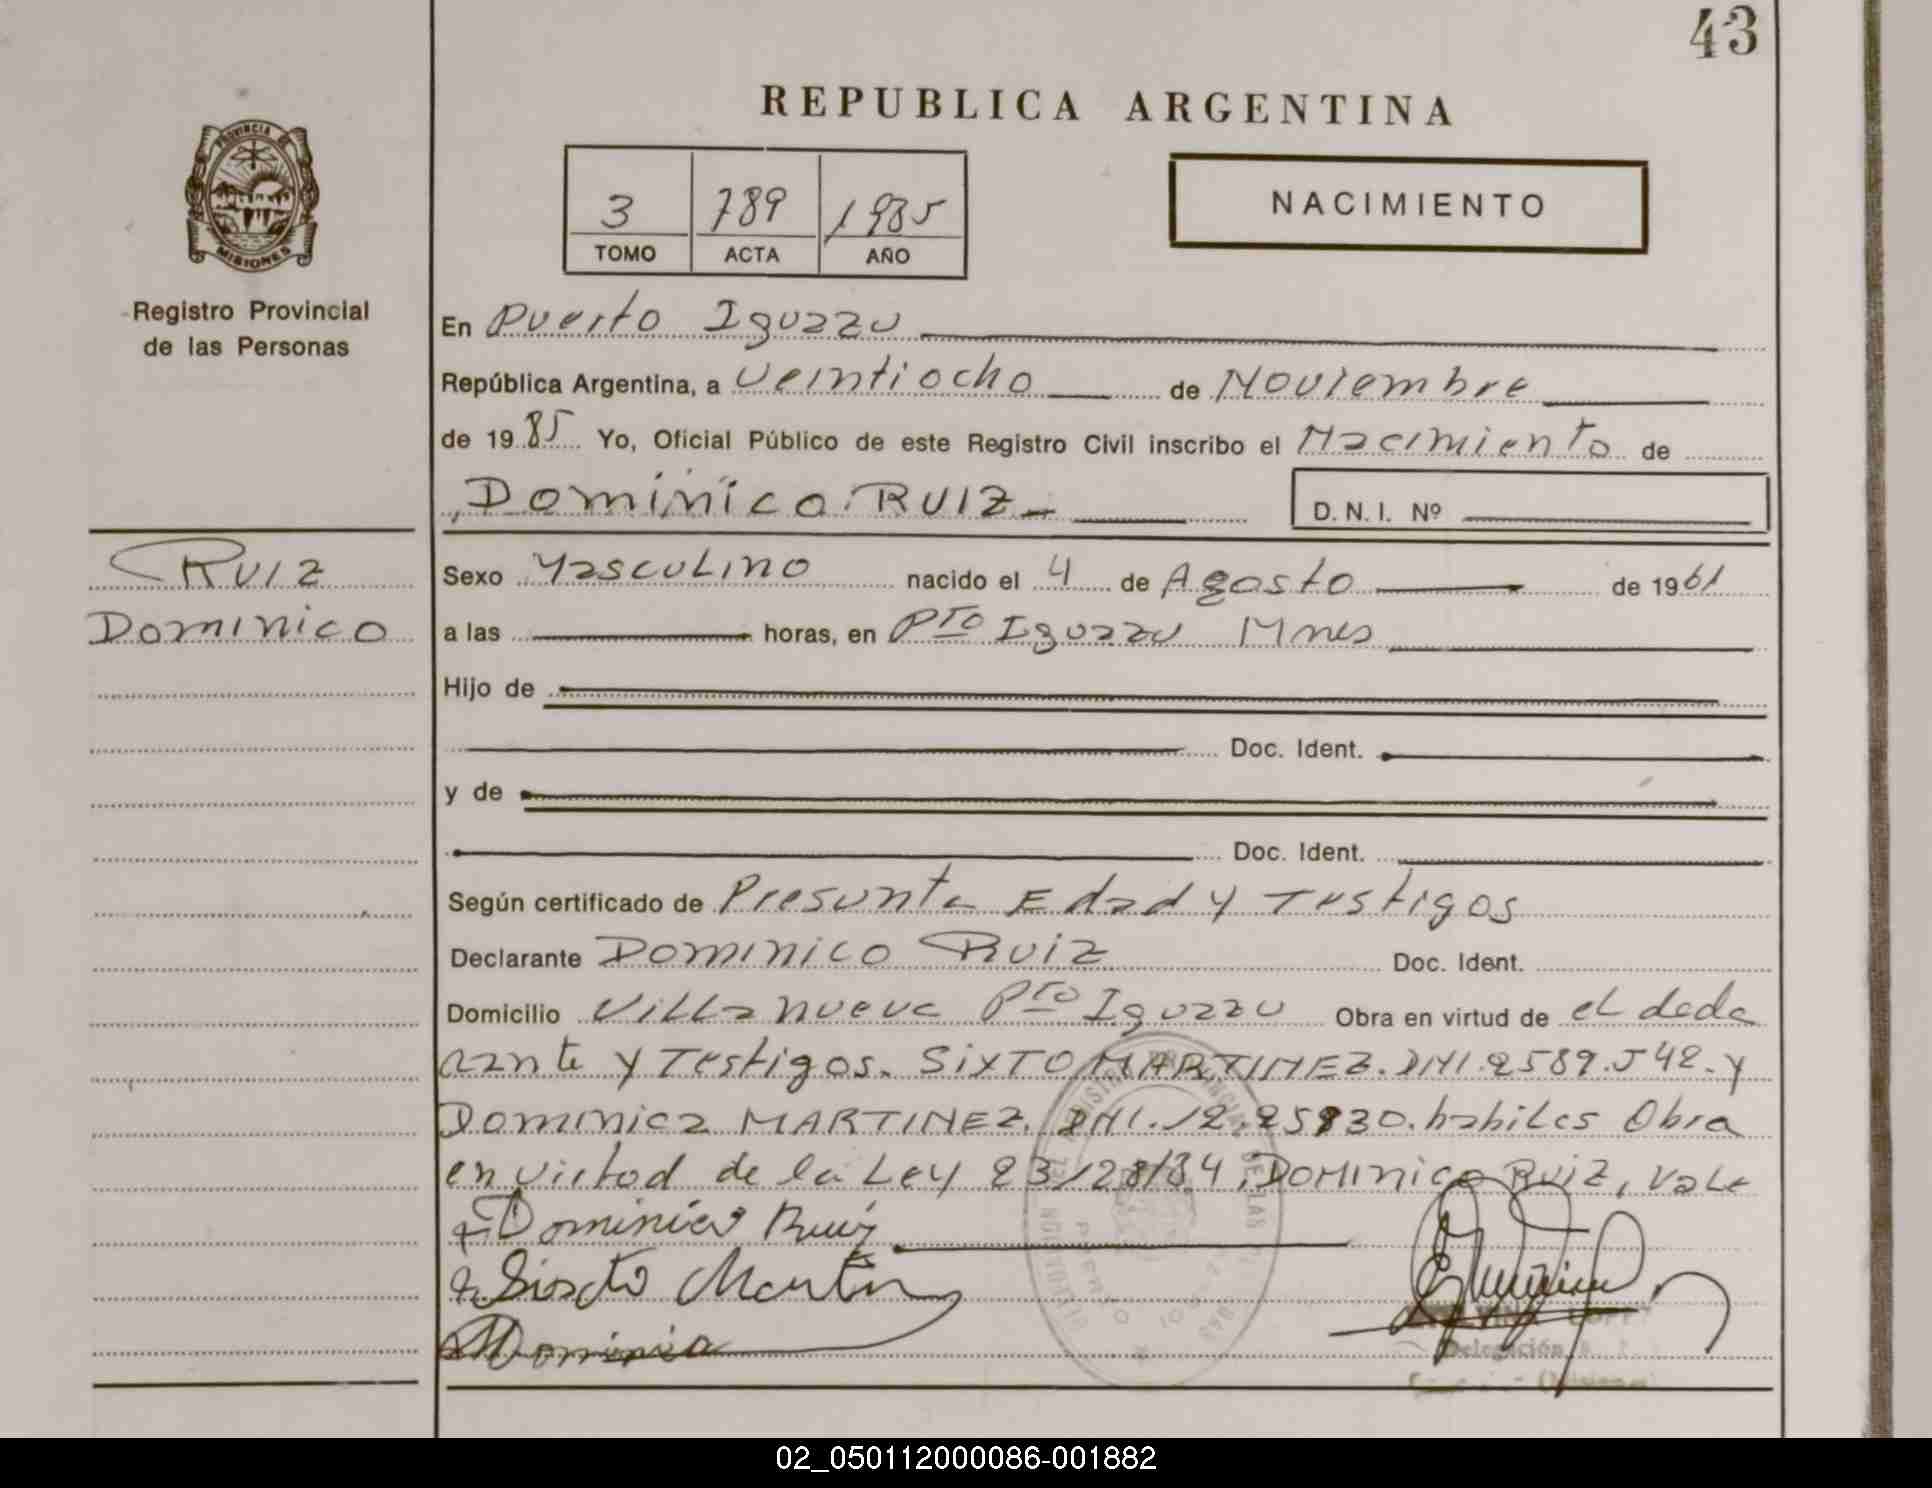 43
REPUBLICA ARGENTINA
PROVINCIA DE
MISIONES
3 789 1985
TOMO ACTA AÑO
NACIMIENTO
Registro Provincial
de las Personas
En Puerto Iguazu
República Argentina, a Veintiocho de Noviembre
de 1985 Yo, Oficial Público de este Registro Civil inscribo el Nacimiento de
Dominico RUIZ
D.N.I. Nº
RUIZ
Dominico
Sexo Masculino nacido el 4 de Agosto de 1961
a las horas, en Pto Iguazu Mnes
Hijo de
Doc. Ident.
y de
Doc. Ident.
Según certificado de Presunta Edad y Testigos
Declarante Dominico Ruiz Doc. Ident.
Domicilio Villa nueva Pto Iguazu Obra en virtud de el decla
rante y Testigos. SIXTO MARTINEZ. DNI. 2589.542. y
Dominica MARTINEZ. DNI. habiles Obra
en virtud de la Ley 23128/84, DOMINICO RUIZ, Vale
Dominico Ruiz
Sixto Martin
Dominia
Delegación
02_050112000086-001882